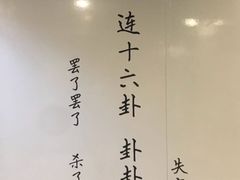 失
连十六卦 卦卦
罢了罢了 杀了